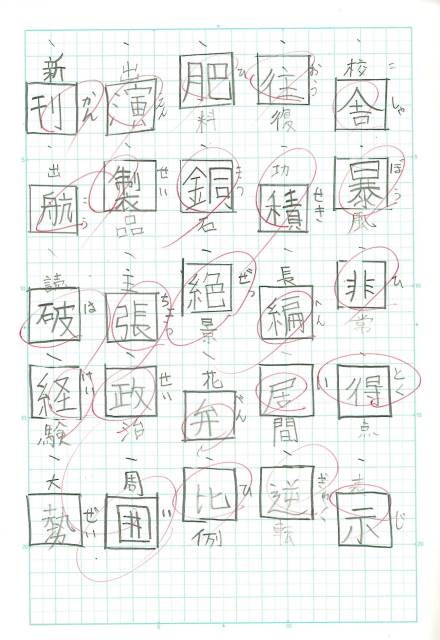 校舎 しゃ
暴風 ぼう
非常 ひ
得点 とく
表示 じ
往復 おう
功積 せき
長編 へん
居間 い
逆転 ぎゃく
肥料 ひ
銅石
絶景 ぜっ
花弁 べん
比例 ひ
出演 えん
製品 せい
主張 ちょう
政治 せい
周囲 い
新刊 かん
出航 こう
読破 は
経験 けい
大勢 ぜい